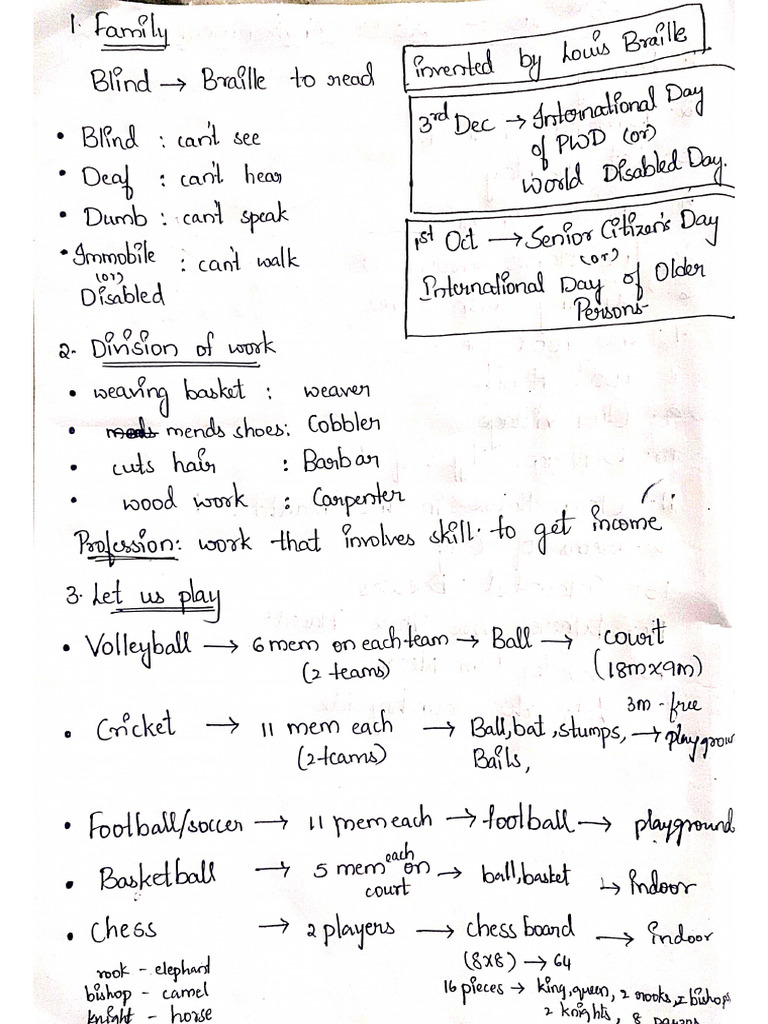 1. Family
Blind → Braille to read
invented by Louis Braille
3rd Dec → International Day
of PWD (or)
World Disabled Day.
• Blind : can't see
• Deaf : can't hear
• Dumb : can't speak
• Immobile : can't walk
(or)
Disabled
1st Oct → Senior Citizen's Day
(or)
International Day of Older
Persons
2. Division of work
• weaving basket : weaver
• mends shoes : Cobbler
• cuts hair : Barbar
• wood work : Carpenter
Profession: work that involves skill. to get income
3. Let us play
• Volleyball → 6 mem on each team → Ball → court
(2 teams) (18m x 9m)
3m - free
• Cricket → 11 mem each → Ball, bat, stumps, → playgrou
(2 teams) Bails,
• Football/soccer → 11 mem each → football → playground
• Basketball → 5 mem each on → ball, basket ↳ Indoor
court
• Chess → 2 players → chess board → indoor
rook - elephard (8x8) → 64
bishop - camel 16 pieces → king, queen, 2 rooks, 2 bishops
knight - horse 2 knights, 8 pawns